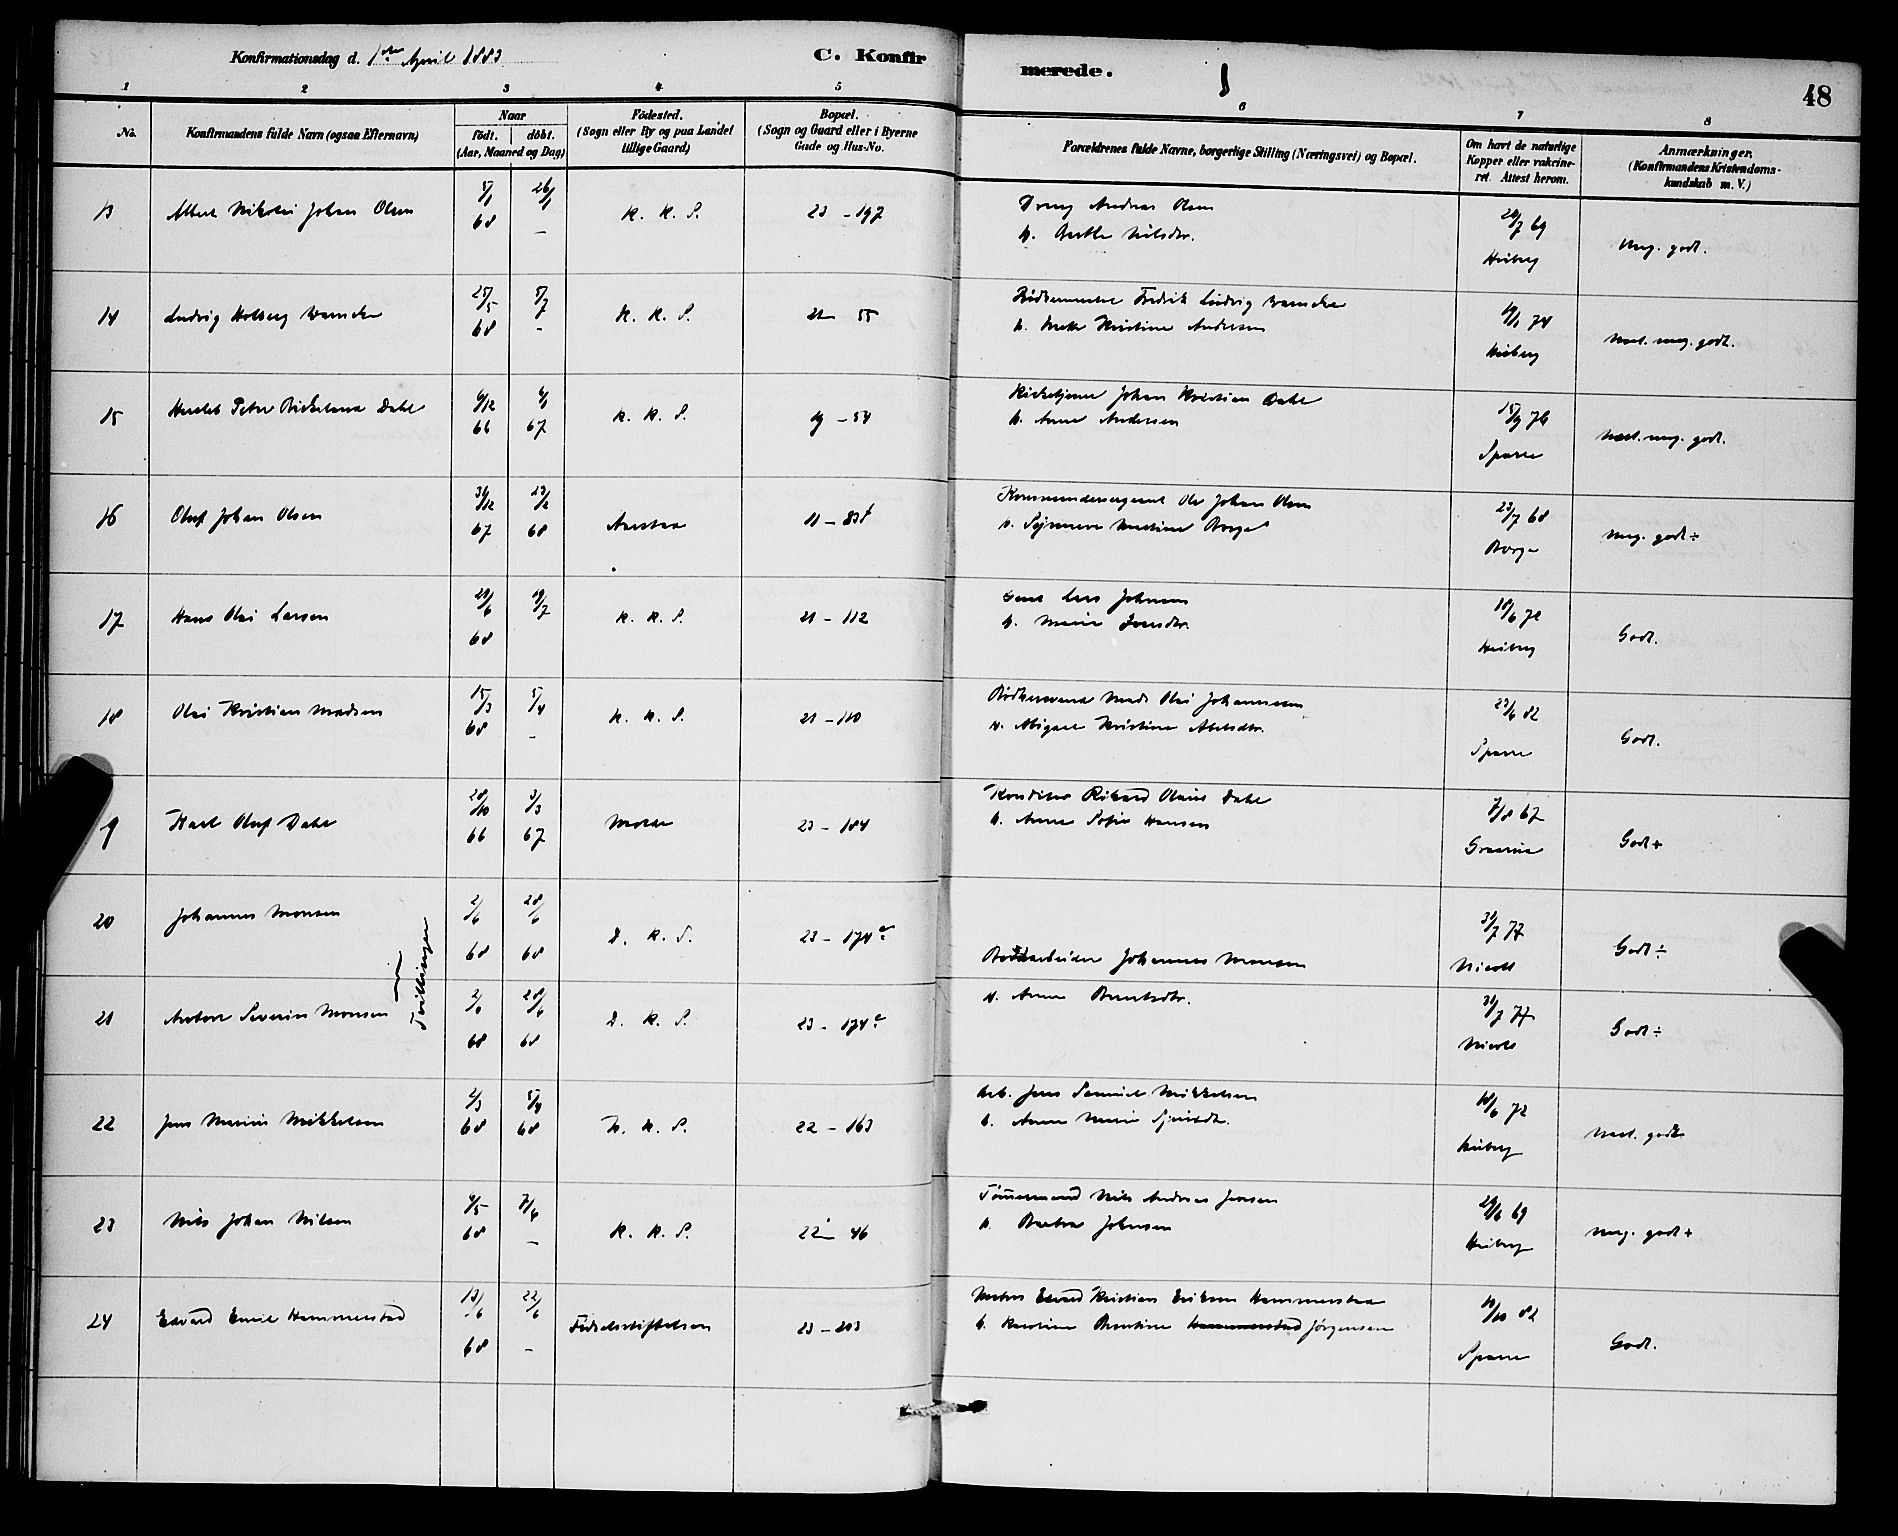 Konfirmationsdag d. 1ste April 1883
C. Konfirmerede.
48
1 2 3 4 5 6 7 8
No.
Konfirmandens fulde Navn (ogsaa Efternavn)
Naar
födt. döbt.
(Aar, Maaned og Dag)
Födested.
(Sogn eller By og paa Landet
tillige Gaard)
Bopæl.
(Sogn og Gaard eller i Byerne
Gade og Hus-No.
Forældrenes fulde Navne, borgerlige Stilling (Næringsvei) og Bopæl.
Om havt de naturlige
Kopper eller vakcine-
ret. Attest herom.
Anmærkninger.
(Konfirmandens Kristendoms-
kundskab m. V.)
13 Albert Nikolai Johan Olsen 26/1 68 – K. K. S. 23 – 197
Andreas Olsen
h. Nilsdtr.
69 Heiberg
Meg. godt.
14 Ludvig Holberg Warncke 25/5 5/7 68 – K. K. S. 21 – 55
Bödkermester Fredrik Ludvig Warncke
h. Mette Kristine Andersen
74 Heiberg
Next. meg. godt.
15 Herlof Petter Birkeland Dahl 6/12 6/1 66 67 K. K. S. 19 – 54
Kirketjener Johan Kristian Dahl
h. Anne Andersen
15/9 76 Sparre
Næst. meg. godt.
16 Oluf Johan Olsen 31/12 23/2 67 68 Aarstad 11 – 83
Kommandersergeant Ole Johan Olsen
h. Martine Borge
23/7 68 Borge
Meg. godt ÷
17 Hans Olai Larsen 21/6 19/7 68 K. K. S. 21 – 112
Lars Johnsen
h. Marie
18/6 72 Heiberg
Godt.
18 Olai Kristian Madsen 15/3 5/4 68 – K. K. S. 21 – 110
Bödkersvend Mads Olai Johannessen
h. Abigael Kristine Abelsdtr.
23/6 82 Sparre
Godt.
19 Karl Oluf Dahl 28/10 3/3 66 67 Molde 23 – 184
Konditor Rikard Olaus Dahl
h. Anne Sofie Hansen
7/8 67
Godt +
20 Johannes Monsen 2/6 28/6 68 68 D. K. S. 23 – 174c
Tvillinger
Bodarbeider Johannes Monsen
31/7 77 Nicoll
Godt ÷
21 Severin Monsen 2/6 28/6 68 68 D. K. S. 23 – 174c
h. Anne Berntsdtr.
31/7 77 Nicoll
Godt ÷
22 Jens Marius Mikkelsen 2/3 5/4 68 68 K. K. S. 22 – 163
Arb. Jens Samuel Mikkelsen
h. Anne Marie
18/6 72 Heiberg
Next. godt
23 Nils Johan Nilsen 4/5 7/6 68 – K. K. S. 22 – 46
Tömmermand Nils Andreas Jensen
h. Barbra Johnsen
29/6 69 Heiberg
Meg. godt +
24 Edvard Emil Hammerstad 13/6 22/6 68 – Födselsstiftelsen 23 – 203
Matros Edvard Kristian Eriksen Hammerstad
h. Karoline Berntine Hammerstad Jörgensen
10/10 82 Sparre
Godt.